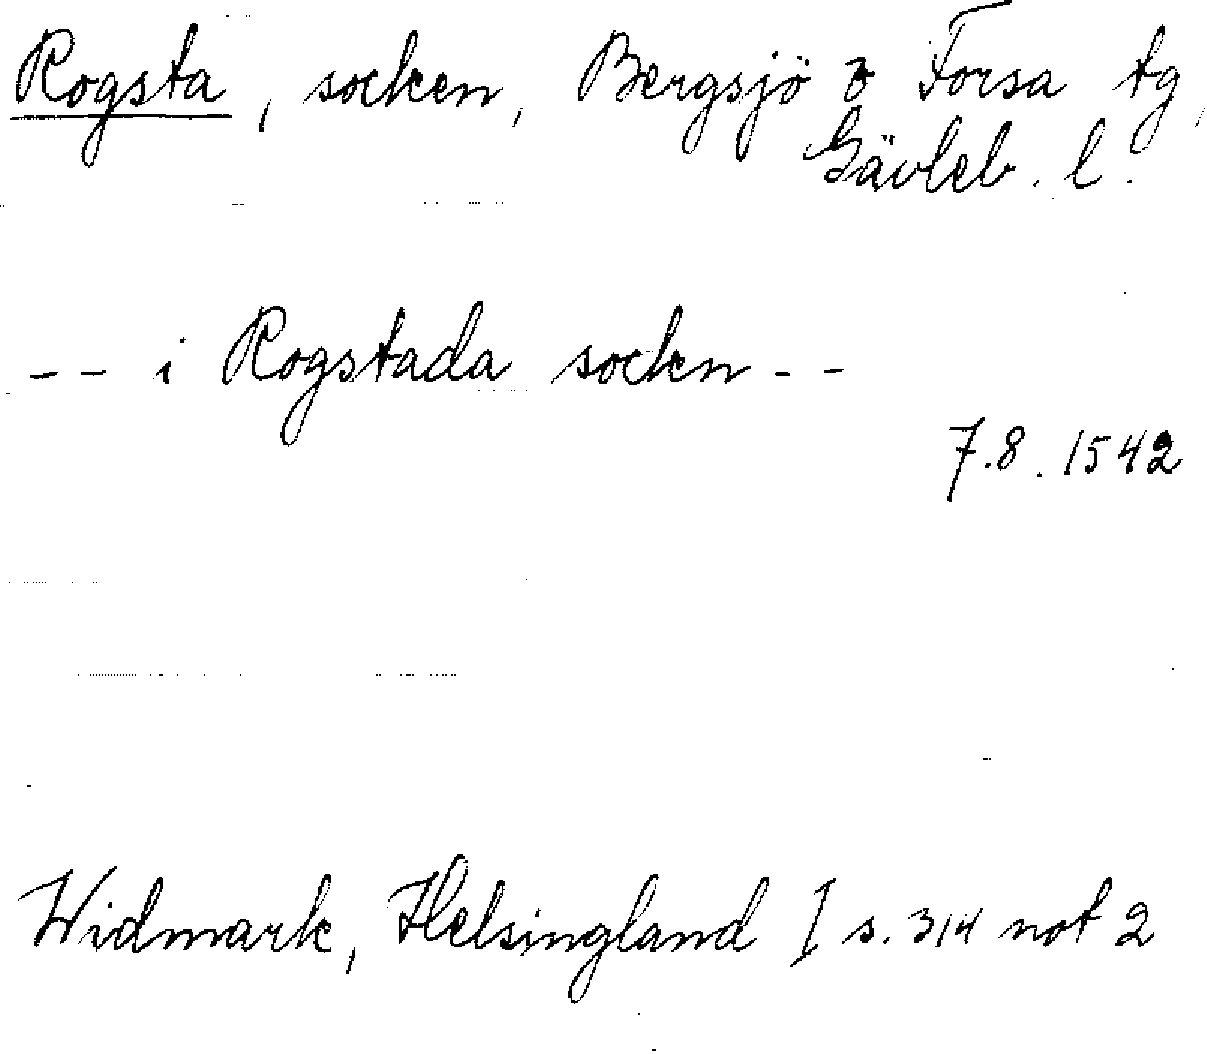 Rogsta, socken, Bergsjö o Forsa tg,
Gävleb. l.
-- i Rogstada socken --
7.8. 1542
Widmark, Helsingland I s. 314 not 2